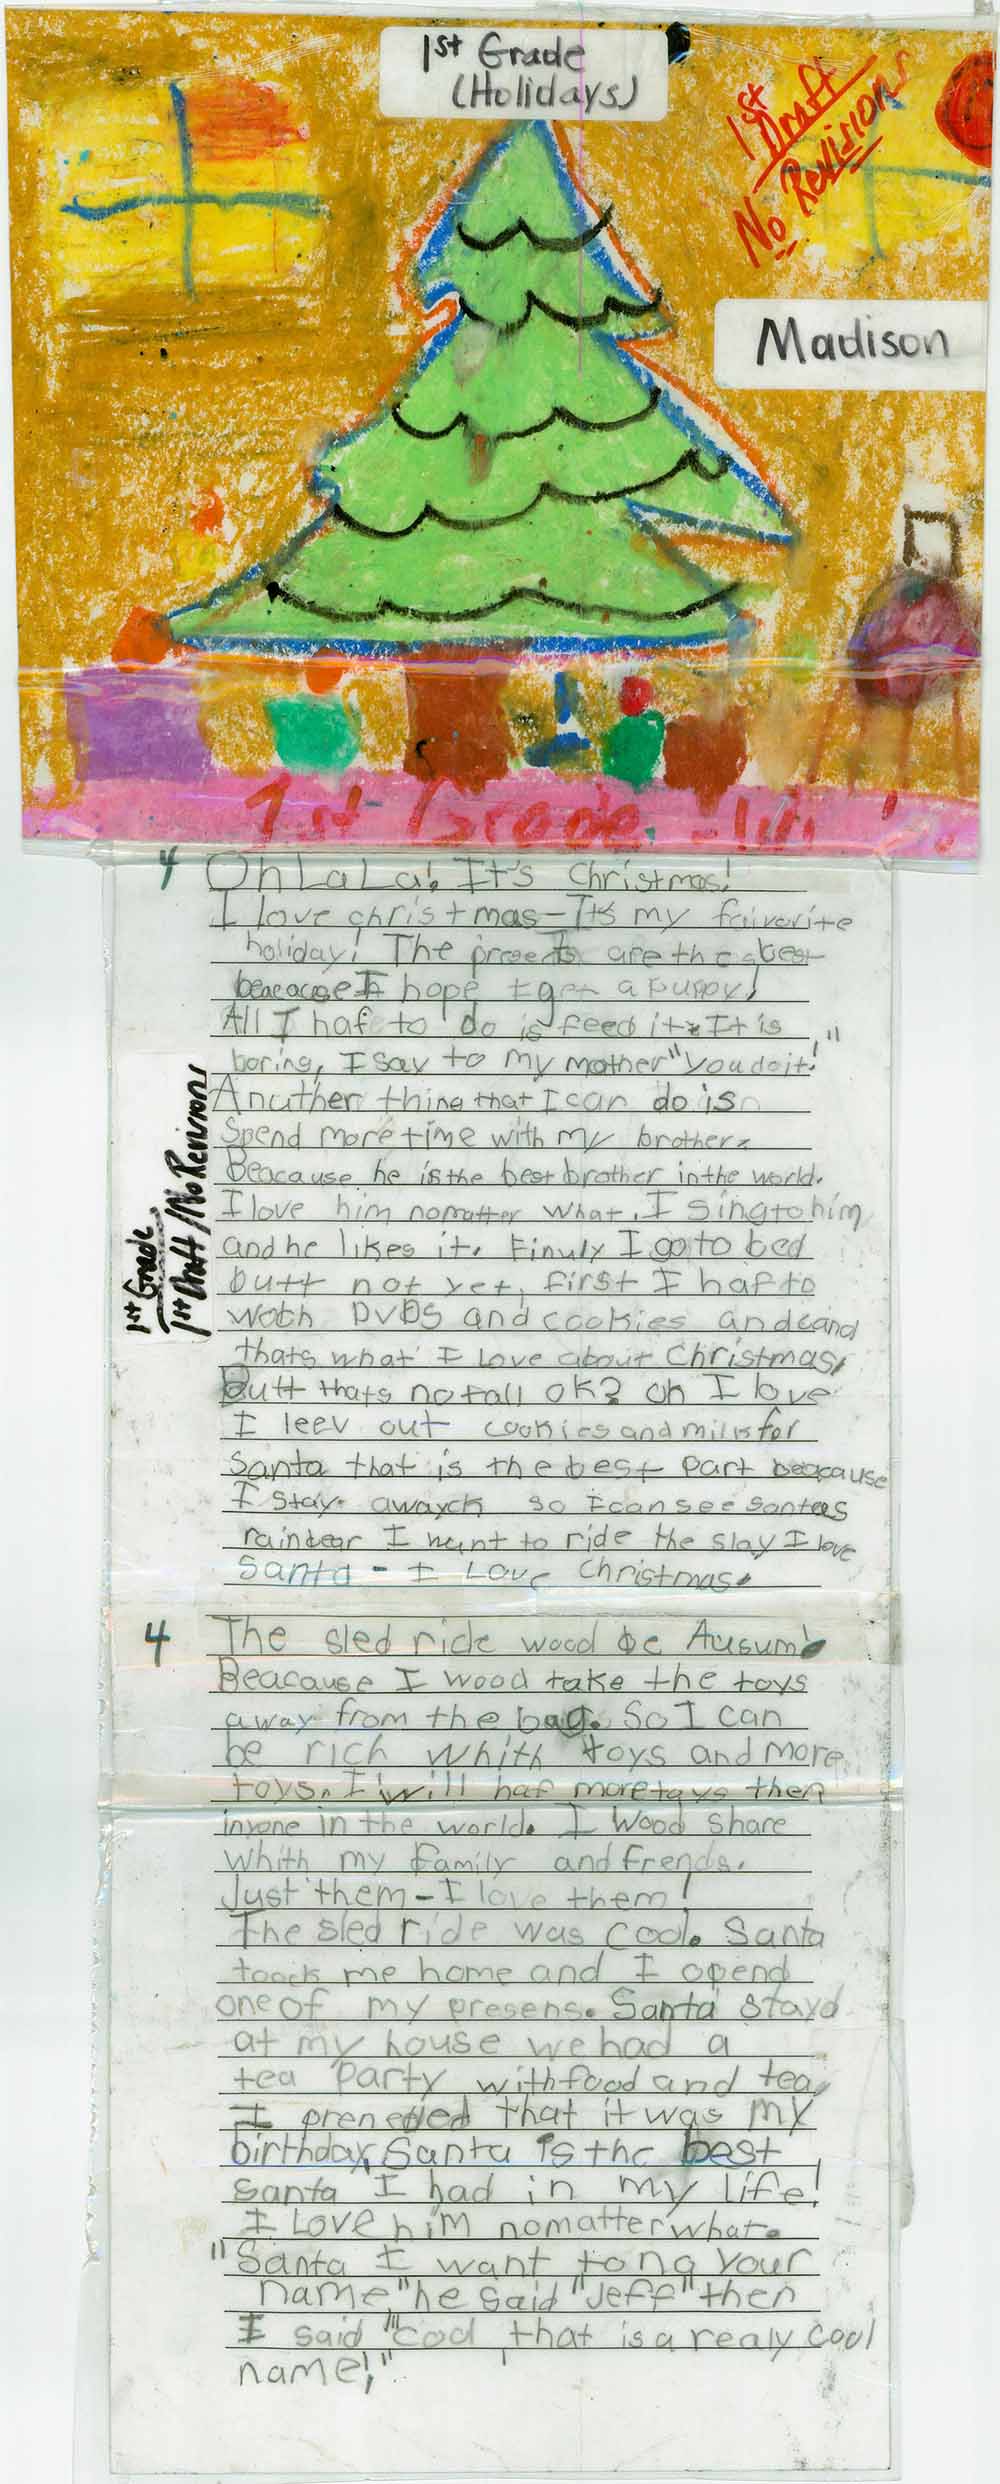 1st Grade
(Holidays)
1st
Draft
No Revisions
Madison
1st Grade
4 Oh La La! It's Christmas!
I love christmas-Its my faivorite
holiday! The presents are the best
beacause I hope t get a puppy!
All I haf to do is feed it. It is
boring, I say to my mother "you do it!"
Anuther thing that I can do is
Spend more time with my brother.
Beacause he is the best brother in the world.
I love him nomatter what. I sing to him
and he likes it. Finuly I go to bed
butt not yet, first I haf to
woth DVDS and cookies and cand
thats what I love about Christmas,
Butt thats not all OK? oh I love
I leev out cookies and milk for
Santa that is the best part beacause
I stay awayck so I can see santas
raindear I want to ride the slay I love
Santa - I Love Christmas.
1st Grade
1st Draft/No Revisions
4 The sled ride wood be Ausum!
Beacause I wood take the toys
away from the bag. So I can
be rich whith toys and more
toys. I will haf more toys then
inyone in the world. I wood share
whith my family and frends.
Just them-I love them!
The sled ride was cool. Santa
toock me home and I opend
one of my presens. Santa stayd
at my house we had a
tea Party with food and tea,
I preneded that it was my
birthday, Santa is the best
santa I had in my life!
I Love him nomatter what.
"Santa I want to no your
name" he said "Jeff" then
I said "Cool that is a realy cool
name!"